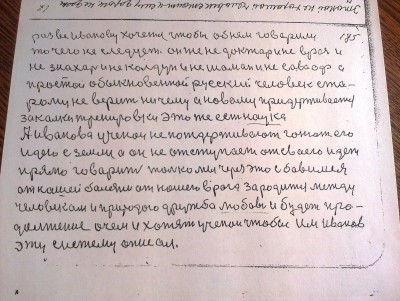 185
разве Иванову хочется чтобы об нем говарили
то чего не следует. он не доктар и не врач и
не знахар и не колдун и не шаман и не саваоф а
простой обыкновенной русский человек ста-
рому не верит ничему а новаму придерживается
закалка тренеровка это же есть наука
А Иванова ученои не поддерживают гонют его
идею с земли а он не отступает от своего идет
прямо говарит только мы через это избавимся
от нашей болезни от нашего врага зародится между
человекам и природою дружба любовь и будет про-
должение о чем и хотят ученои чтобы им Иванов
эту систему описал.